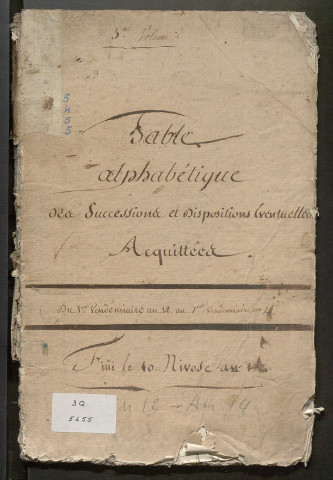 3me Volume
5455
Table
alphabétique
des Successions et Dispositions Eventuelles
Acquittées.
Du 1er Vendémiaire an 12 au 1er Vendemiaire an
Fini le 10 Nivose an
3Q
5455
An 12 - An 14